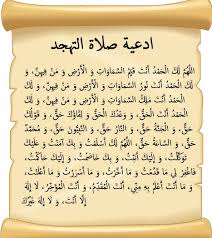 ادعية صلاة التهجد
اللَّهُمَّ لَكَ الْحَمْدُ أَنْتَ قَيِّمُ السَّمَاوَاتِ وَ الْأَرْضِ وَ مَنْ فِيهِنَّ، وَ
لَكَ الْحَمْدُ أَنْتَ نُورُ السَّمَاوَاتِ وَ الْأَرْضِ وَ مَنْ فِيهِنَّ، وَ لَكَ
الْحَمْدُ، أَنْتَ الْحَقُّ، وَ وَعْدُكَ الْحَقُّ، وَ لِقَاؤُكَ حَقٌّ، وَ
قَوْلُكَ حَقٌّ، وَ الْجَنَّةُ حَقٌّ، وَ النَّبِيُّونَ حَقٌّ، وَ مُحَمَّدٌ
حَقٌّ، اللَّهُمَّ لَكَ أَسْلَمْتُ، وَ بِكَ آمَنْتُ، وَ عَلَيْكَ
تَوَكَّلْتُ، وَ إِلَيْكَ أَنَبْتُ، وَ بِكَ خَاصَمْتُ، وَ إِلَيْكَ حَاكَمْتُ،
فَاغْفِرْ لِي مَا قَدَّمْتُ، وَ مَا أَخَّرْتُ، وَ مَا أَسْرَرْتُ وَ مَا أَعْلَنْتُ،
وَ مَا أَنْتَ أَعْلَمُ بِهِ مِنِّي، أَنْتَ الْمُقَدِّمُ، وَ أَنْتَ الْمُؤَخِّرُ، لَا إِلَهَ
إِلَّا أَنْتَ، وَ لَا إِلَهَ غَيْرُكَ